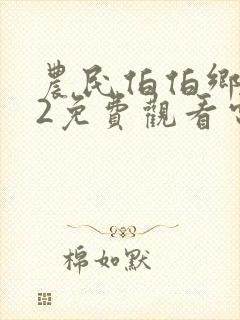 農民伯伯鄉
2免費觀看
棉如默